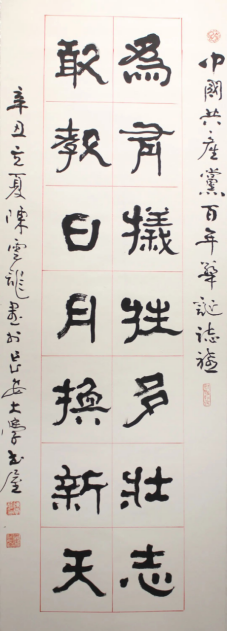 中國共產黨百年華誕誌
為有犧牲多壯志
敢教日月換新天
辛丑立夏陳雲龍書於長安大學